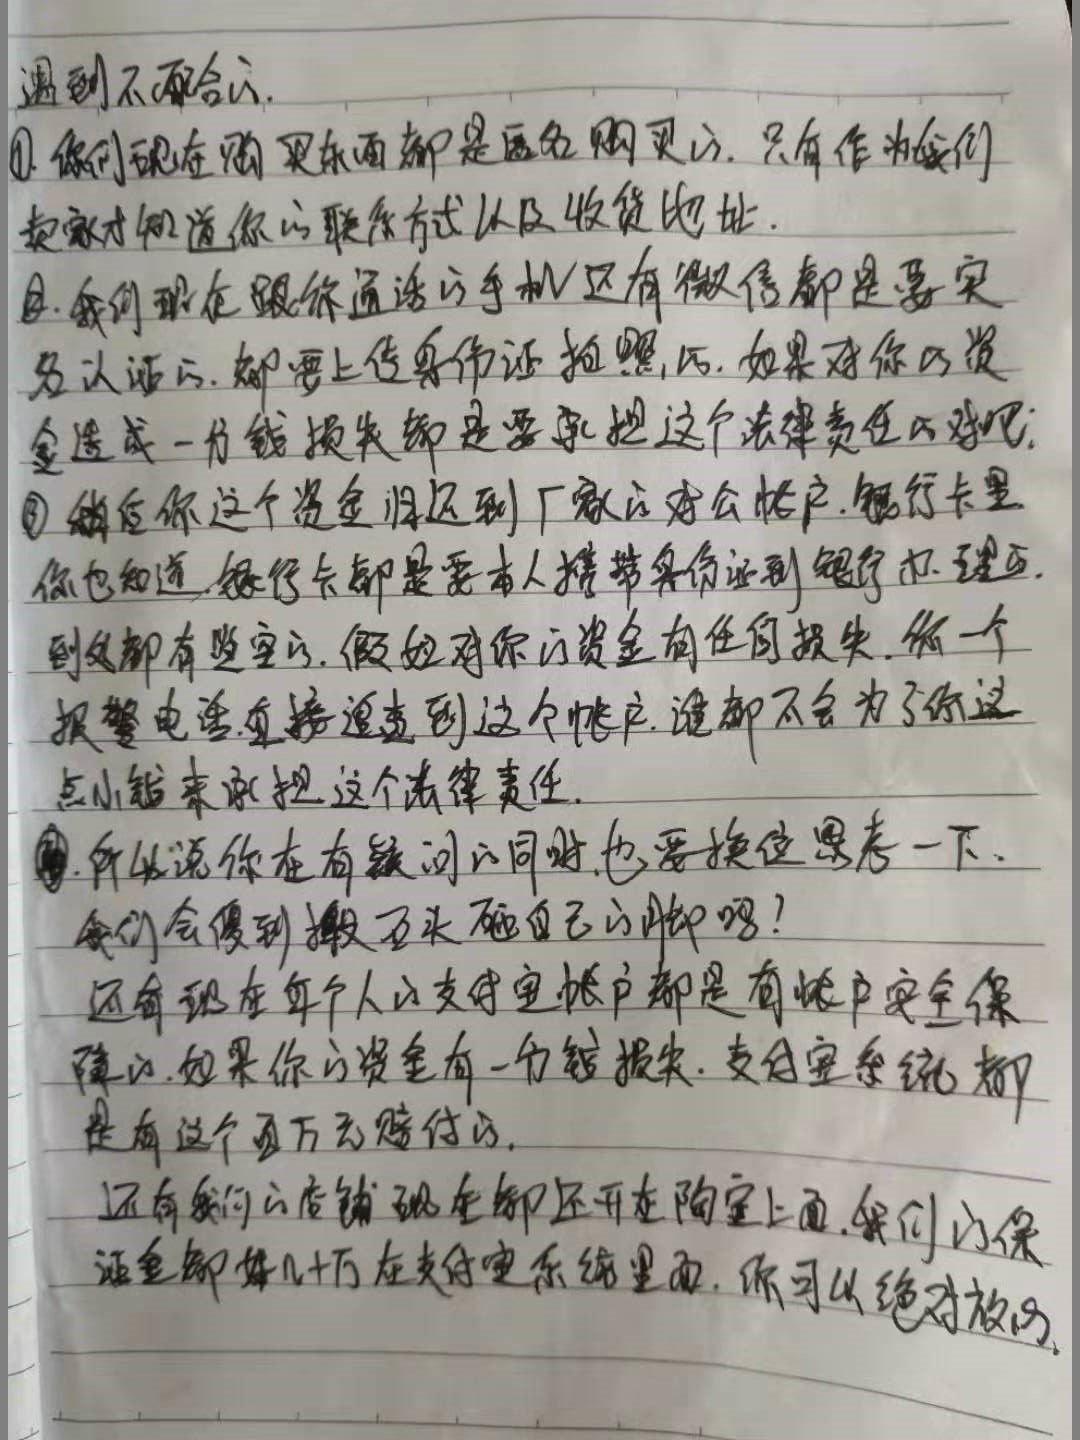 遇到不配合的.
①.你们现在购买东西都是匿名购买的.只有作为我们
卖家才知道你的联系方式以及收货地址.
②.我们现在跟你通话的手机还有微信都是要实
名认证的.都要上传身份证拍照的.如果对你的资
金造成一分钱损失都是要承担这个法律责任的对吧;
③稍后你这个资金归还到厂家的对公帐户.银行卡里
你也知道.银行卡都是要本人携带身份证到银行办理的.
到处都有监空的.假如对你的资金有任何损失.你一个
报警电话.直接追查到这个帐户.谁都不会为了你这
点小钱来承担这个法律责任.
.所以说你在有疑问的同时.也要换位思考一下.
我们会傻到搬石头砸自己的脚吗?
还有现在每个人的支付宝帐户都是有帐户安全保
障的.如果你的资金有一分钱损失.支付宝系统都
是有这个百万元赔付的.
还有我们的店铺现在都还开在陶宝上面.我们的保
证金都好几十万在支付宝系统里面.你可以绝对放心.